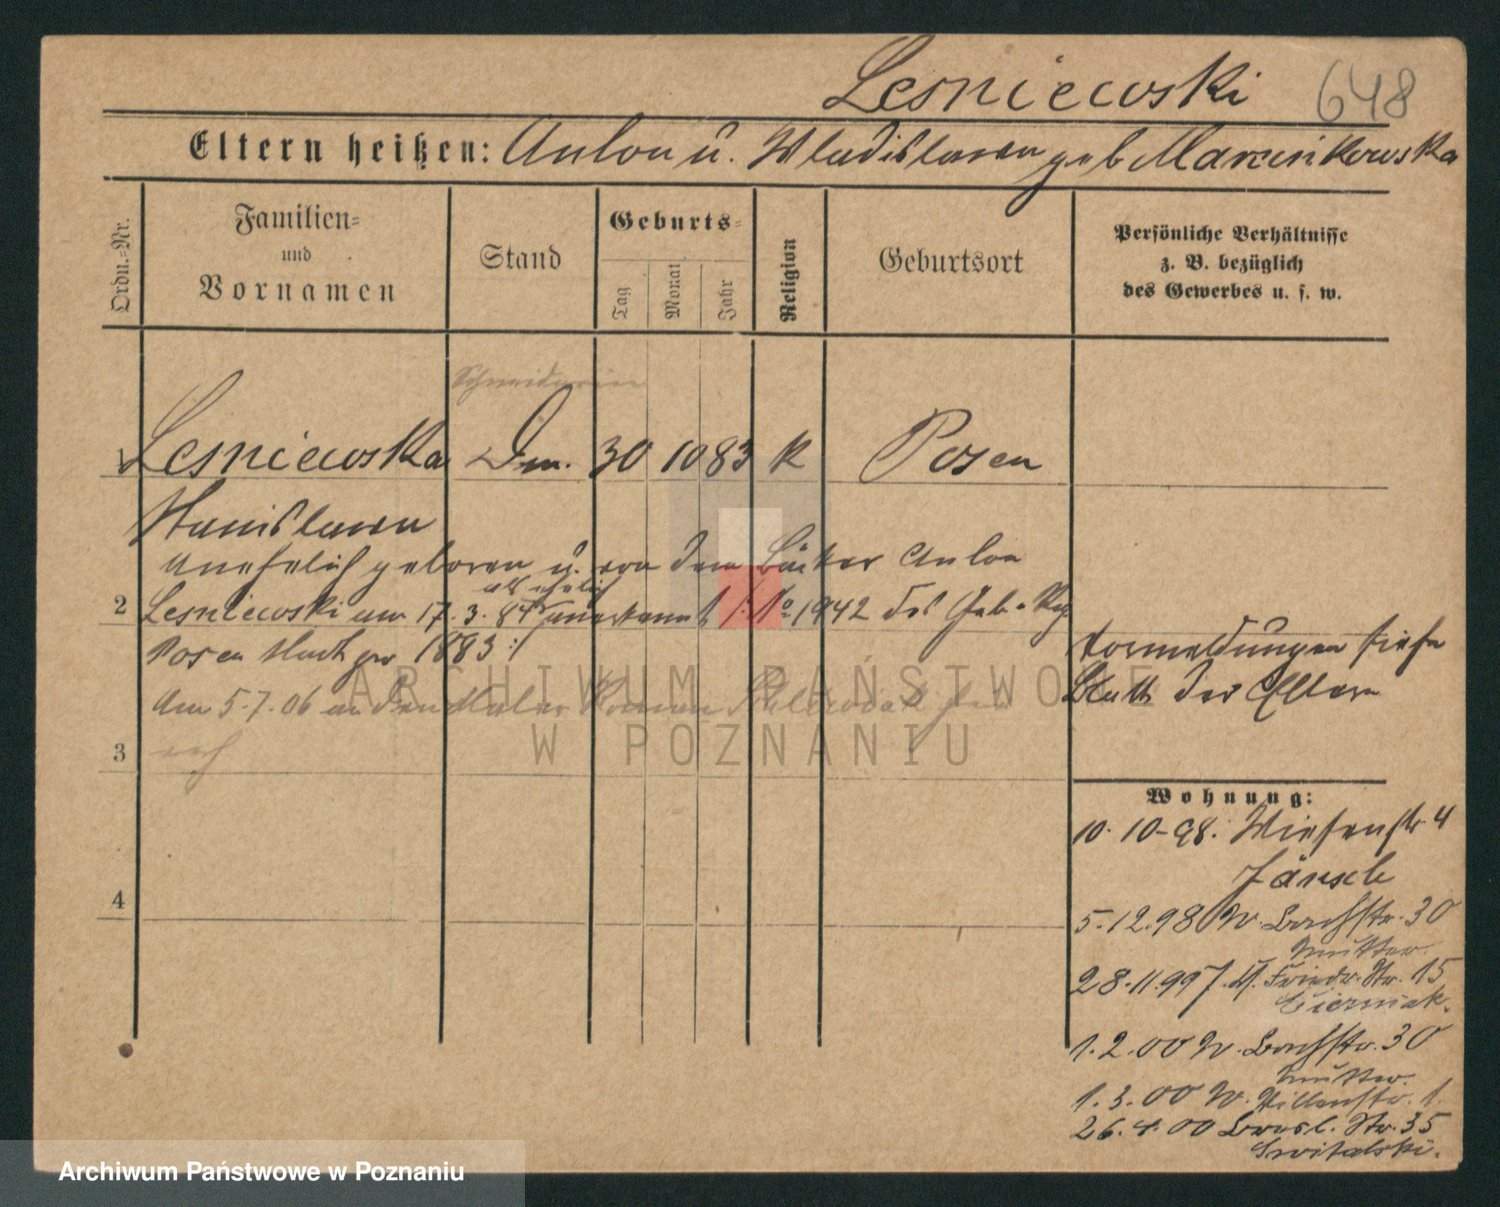 Lesniewski 648
Eltern heißen: Anton u. Wladislawa geb Marcinkowska
Ordn.-Nr.
Familien-
und
Vornamen
Stand
Geburts-
Tag
Monat
Jahr
Religion
Geburtsort
Persönliche Verhältnisse
z. B. bezüglich
des Gewerbes u. s. w.
Schneiderin
1 Lesniewska Dm. 30 10 83 k Posen
Stanislawa
unehelich geboren u. von dem Bäcker Anton
als ehelich
2 Lesniewski am 17. 3. 84 anerkannt /: No 1942 des Geb. Reg.
Posen Stadt pro 1883 :/
Am 5.7.06 an den Maler Roman
3
4
Vormeldungen siehe
Blatt der Eltern
Wohnung:
10. 10-98. Wiesenstr 4
Jänsch
5.12.98 W. Bachstr. 30
Mutter
28.11.99 Friedr. Str. 15
1.2.00 W. Bachstr. 30
Mutter.
1.3.00 W. 1.
26.4.00 Bresl. Str. 35
Switalski.
ARCHIWUM PAŃSTWOWE
W POZNANIU
Archiwum Państwowe w Poznaniu